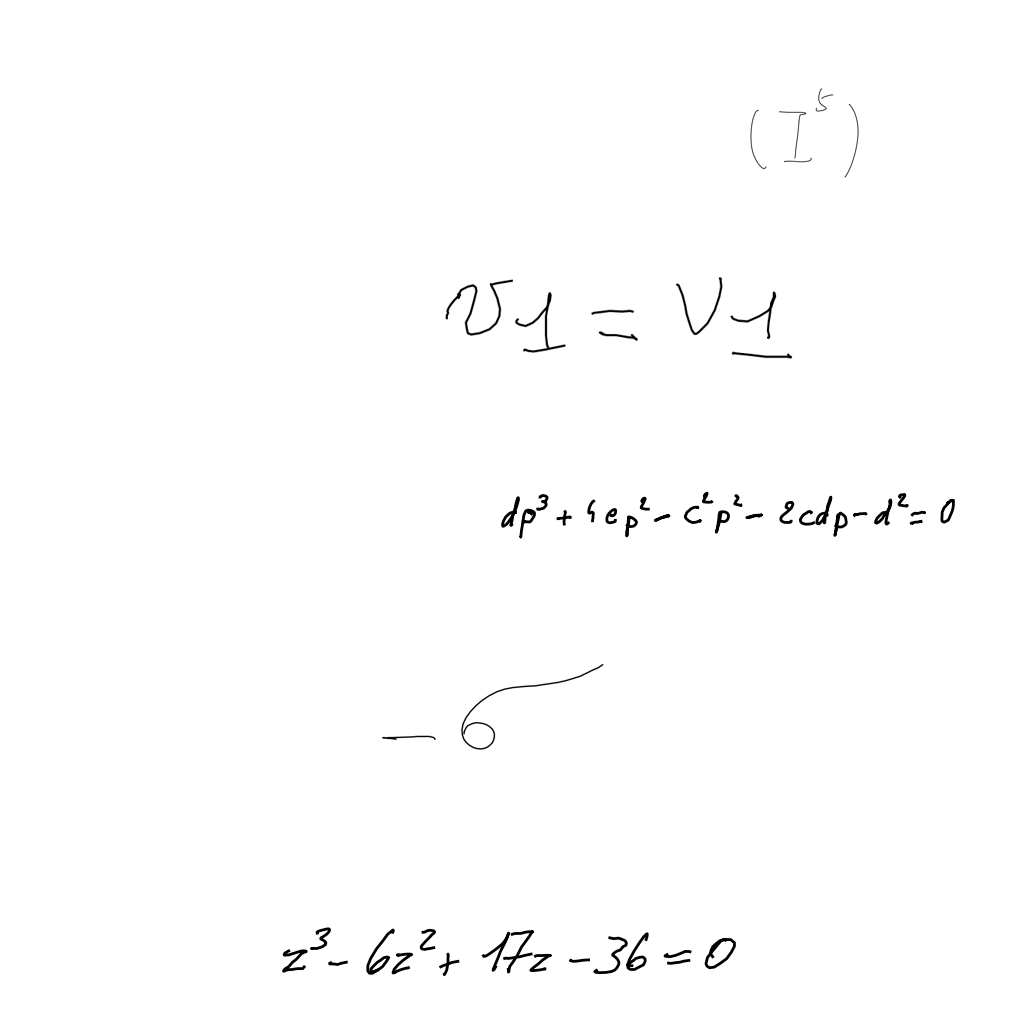 (I⁵)
v1 = V1
dp³ + 4ep² - c²p² - 2cdp - d² = 0
- 6
z³ - 6z² + 17z - 36 = 0